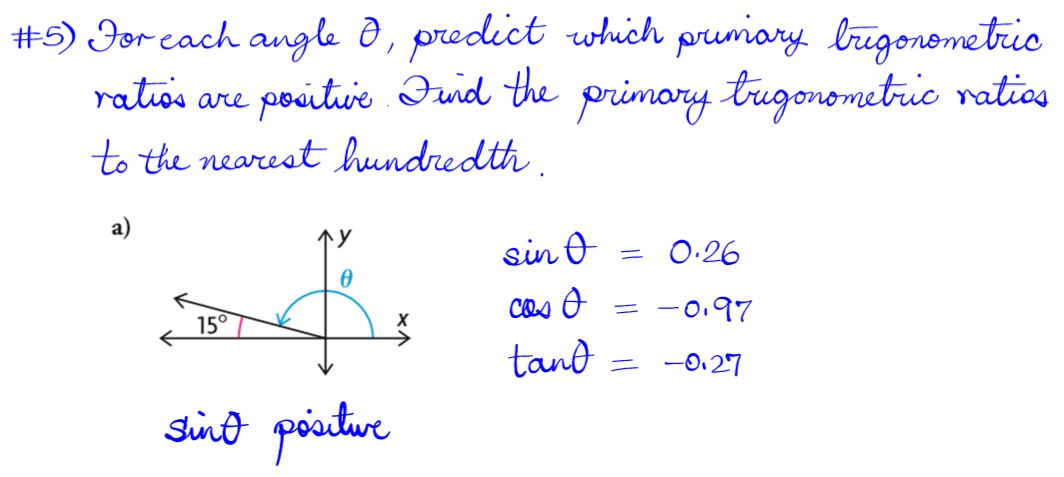 #5) For each angle θ, predict which primary trigonometric
ratios are positive. Find the primary trigonometric ratios
to the nearest hundredth.
a)
y
θ
15°
x
sin θ = 0.26
cos θ = -0.97
tanθ = -0.27
sinθ positive